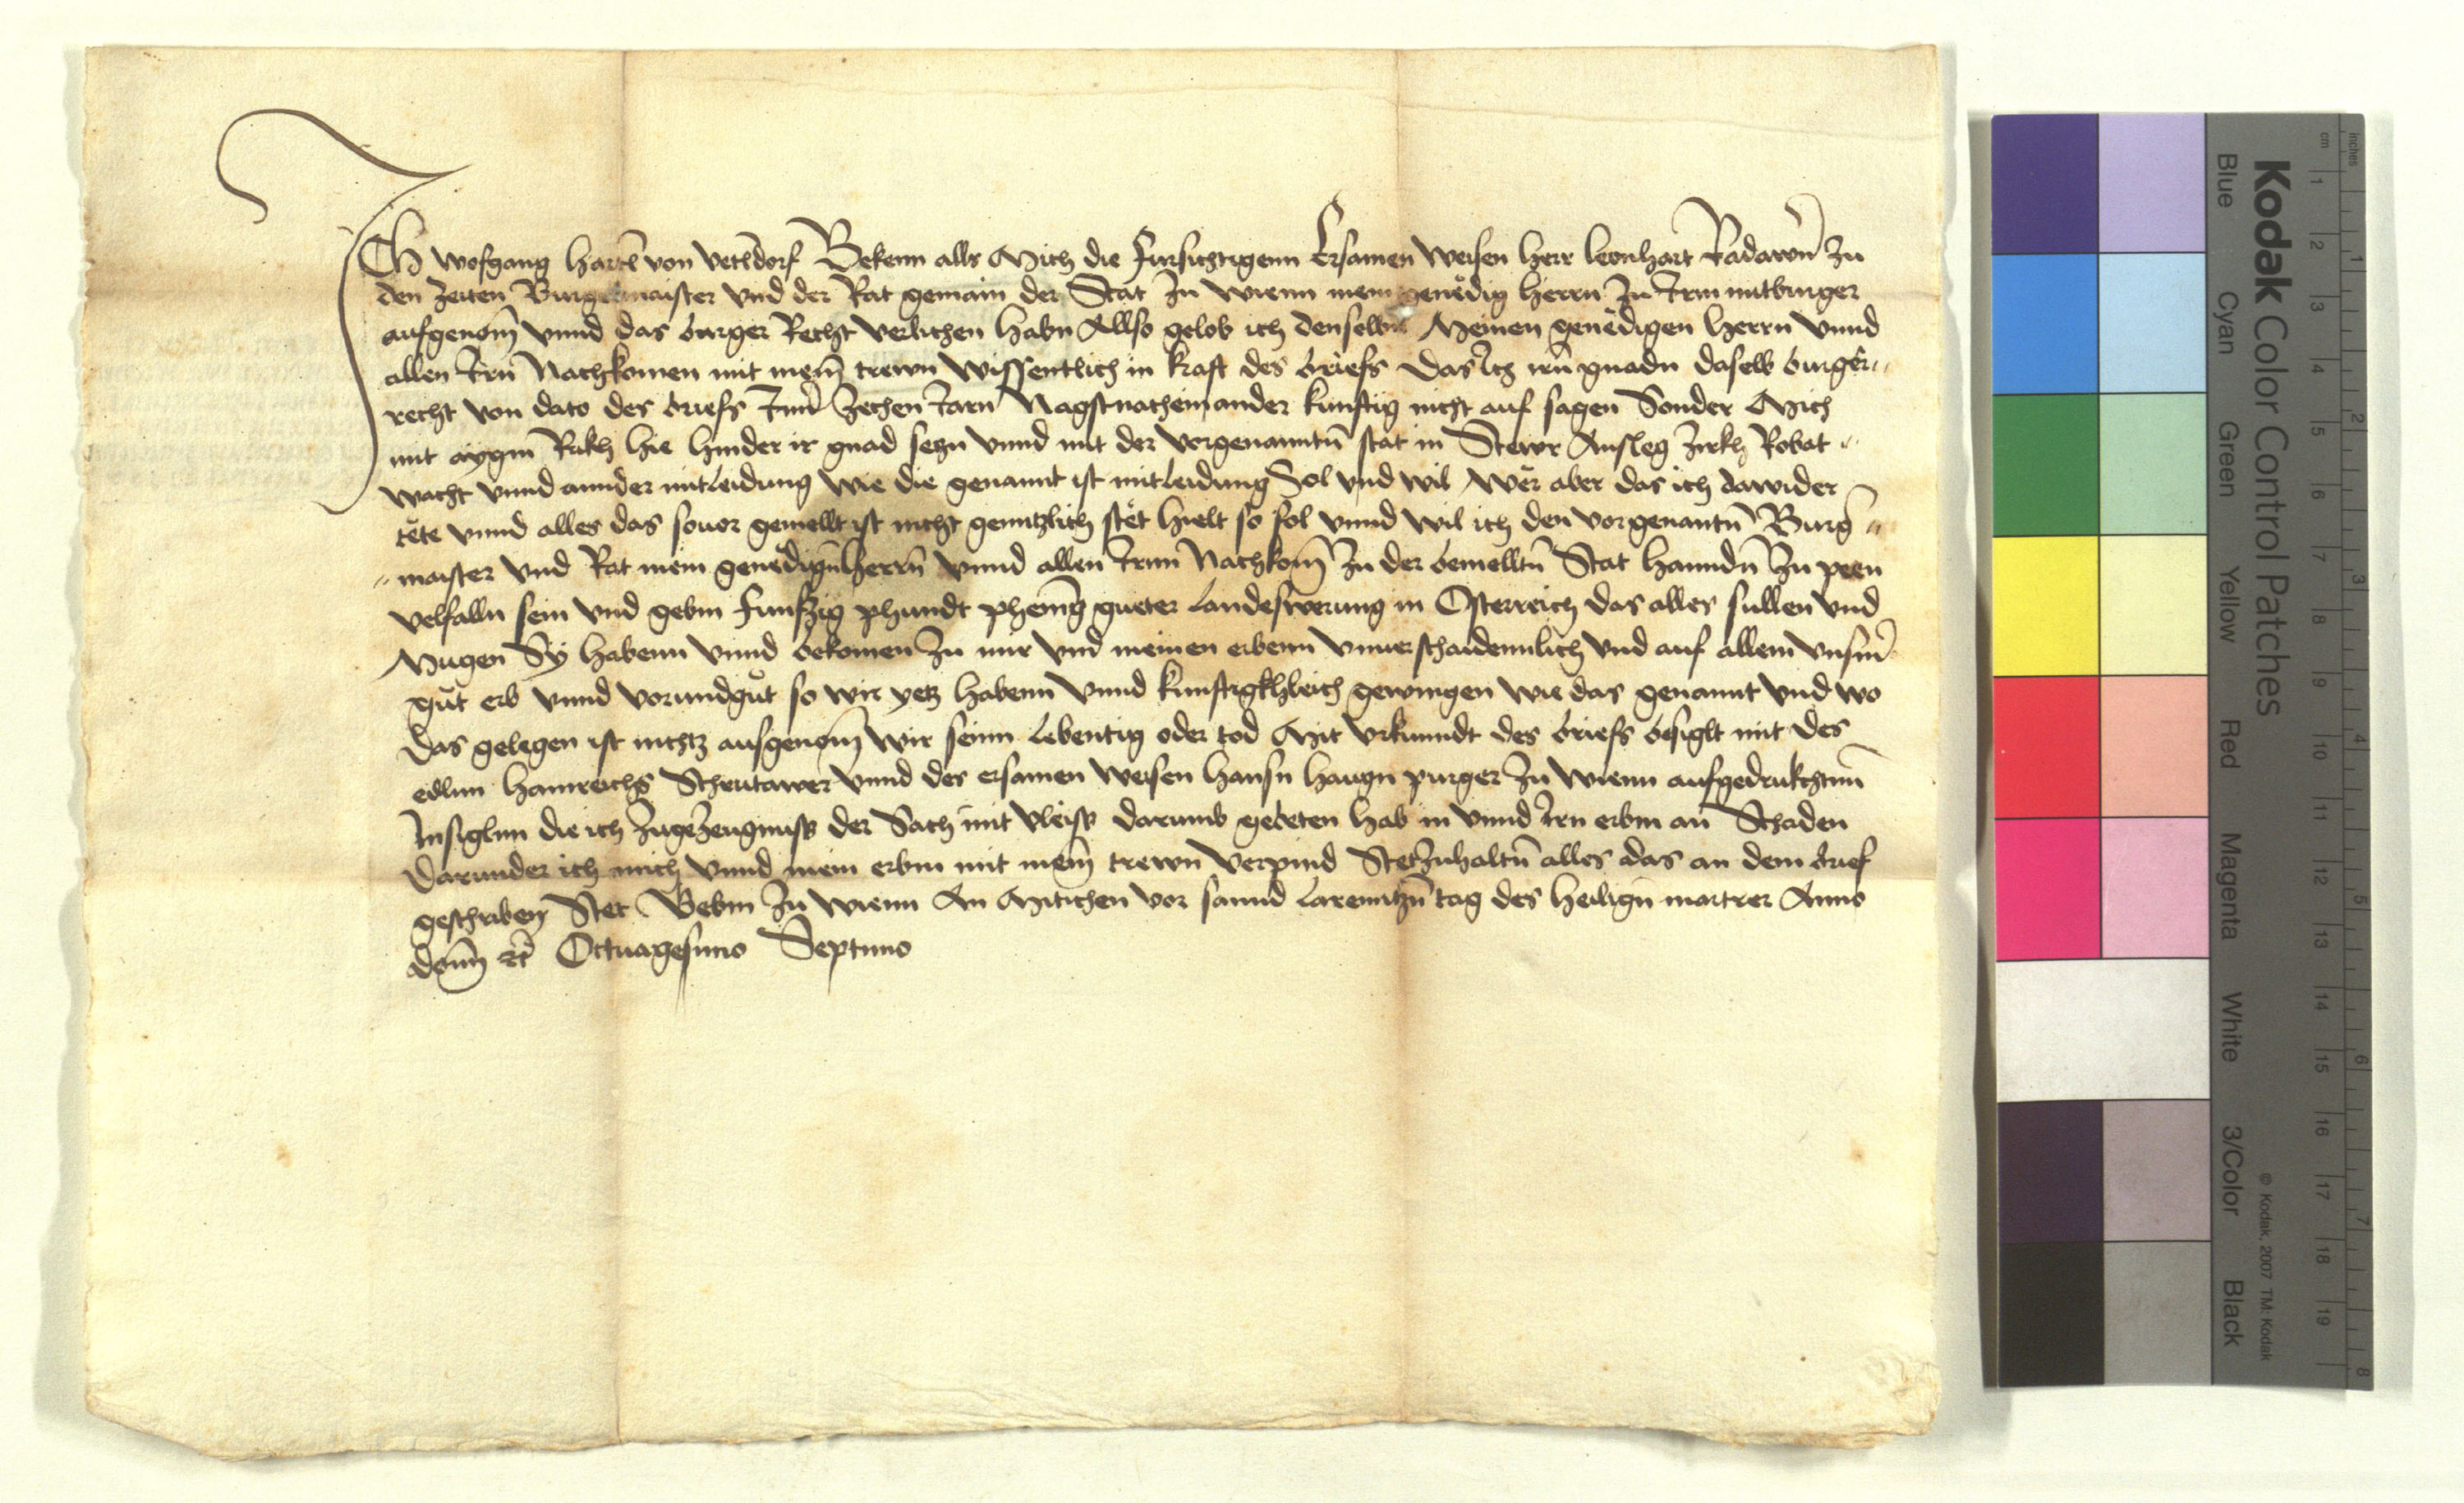 Ich wofgang hartl von Vetldorf Bekenn alls Mich die fursichtigenn Ersamen weisen herr leonhart Radawñ zu
den zeiten Burgermaister vnd der Rat gemain der Stat zu wienn mein genedig herrn zu Irm mitburger
aufgenom̄ vnnd das burger Recht verlichen habn Allso gelob ich denselbn Meinen genedigen herrn vnnd
allen Irn Nachkomen mit mein̄ trewn wissentlich in kraft des briefs das Ich irn̄ gnadn daselb burger=
recht von dato des briefs Inn̄ zechen Iarn Nagstnacheinander kunftig nicht auf sagen Sonder Mich
mit aygm̄ Rukh hie hinder ir gnad sezn vnnd mit der vorgenanntn̄ stat in Stewr Ansleg zirkh Robat =
wacht vnnd annder mitleidung wie die genannt ist mitleidung Sol vnd wil wer aber das ich dawider
tete vnnd alles das souor gemellt ist nicht genntzlich stet hielt so sol vnnd wil ich den vorgenantn̄ Burḡ =
= maister vnd Rat mein genedign̄ herrn̄ vnnd allen Irnn Nachkom̄ zu der bemelltn̄ Stat hanndn̄ zu peen
velfalln sein vnd gebm funfzig phundt phenīg gueter Landeswerung in Osterreich das alles sullen vnd
Mugen Sy habenn vnnd bekomen zu mir vnd meinen erbenn vnuerschaidennlich vnd auf allem vnsm̄
gut erb vnnd vorundgut so wir yetz habenn vnnd kunftigkhleich gewingen wie das genannt vnd wo
das gelegen ist nichtz ausgenom̄ wir seinn lebentig oder tod Mit vrkunndt des briefs besiglt mit des
edlnn hainreichs Scheutawer vnnd des ersamen weisen hansn haugn purger zu wienn aufgedrukchtnn̄
Insiglnn die ich zugezeugnuss der Sach mit vleiss darumb gebeten hab in vnnd Irn erbm an Schaden
darunder ich mich vnnd mein erbm mit mein̄ trewn verpind Stetzuhaltn̄ alles das an dem brief
geschriben Stet Gebm zu wienn An Mitichen vor sannd larenntzn̄ tag des heilign̄ martrer Anno
dom̄ rc̄ Octuagesimo Septimo
Kodak Color Control Patches
© Kodak, 2007 TM: Kodak
Blue Cyan Green Yellow Red Magenta White 3/Color Black
inches 1 2 3 4 5 6 7 8
cm 1 2 3 4 5 6 7 8 9 10 11 12 13 14 15 16 17 18 19